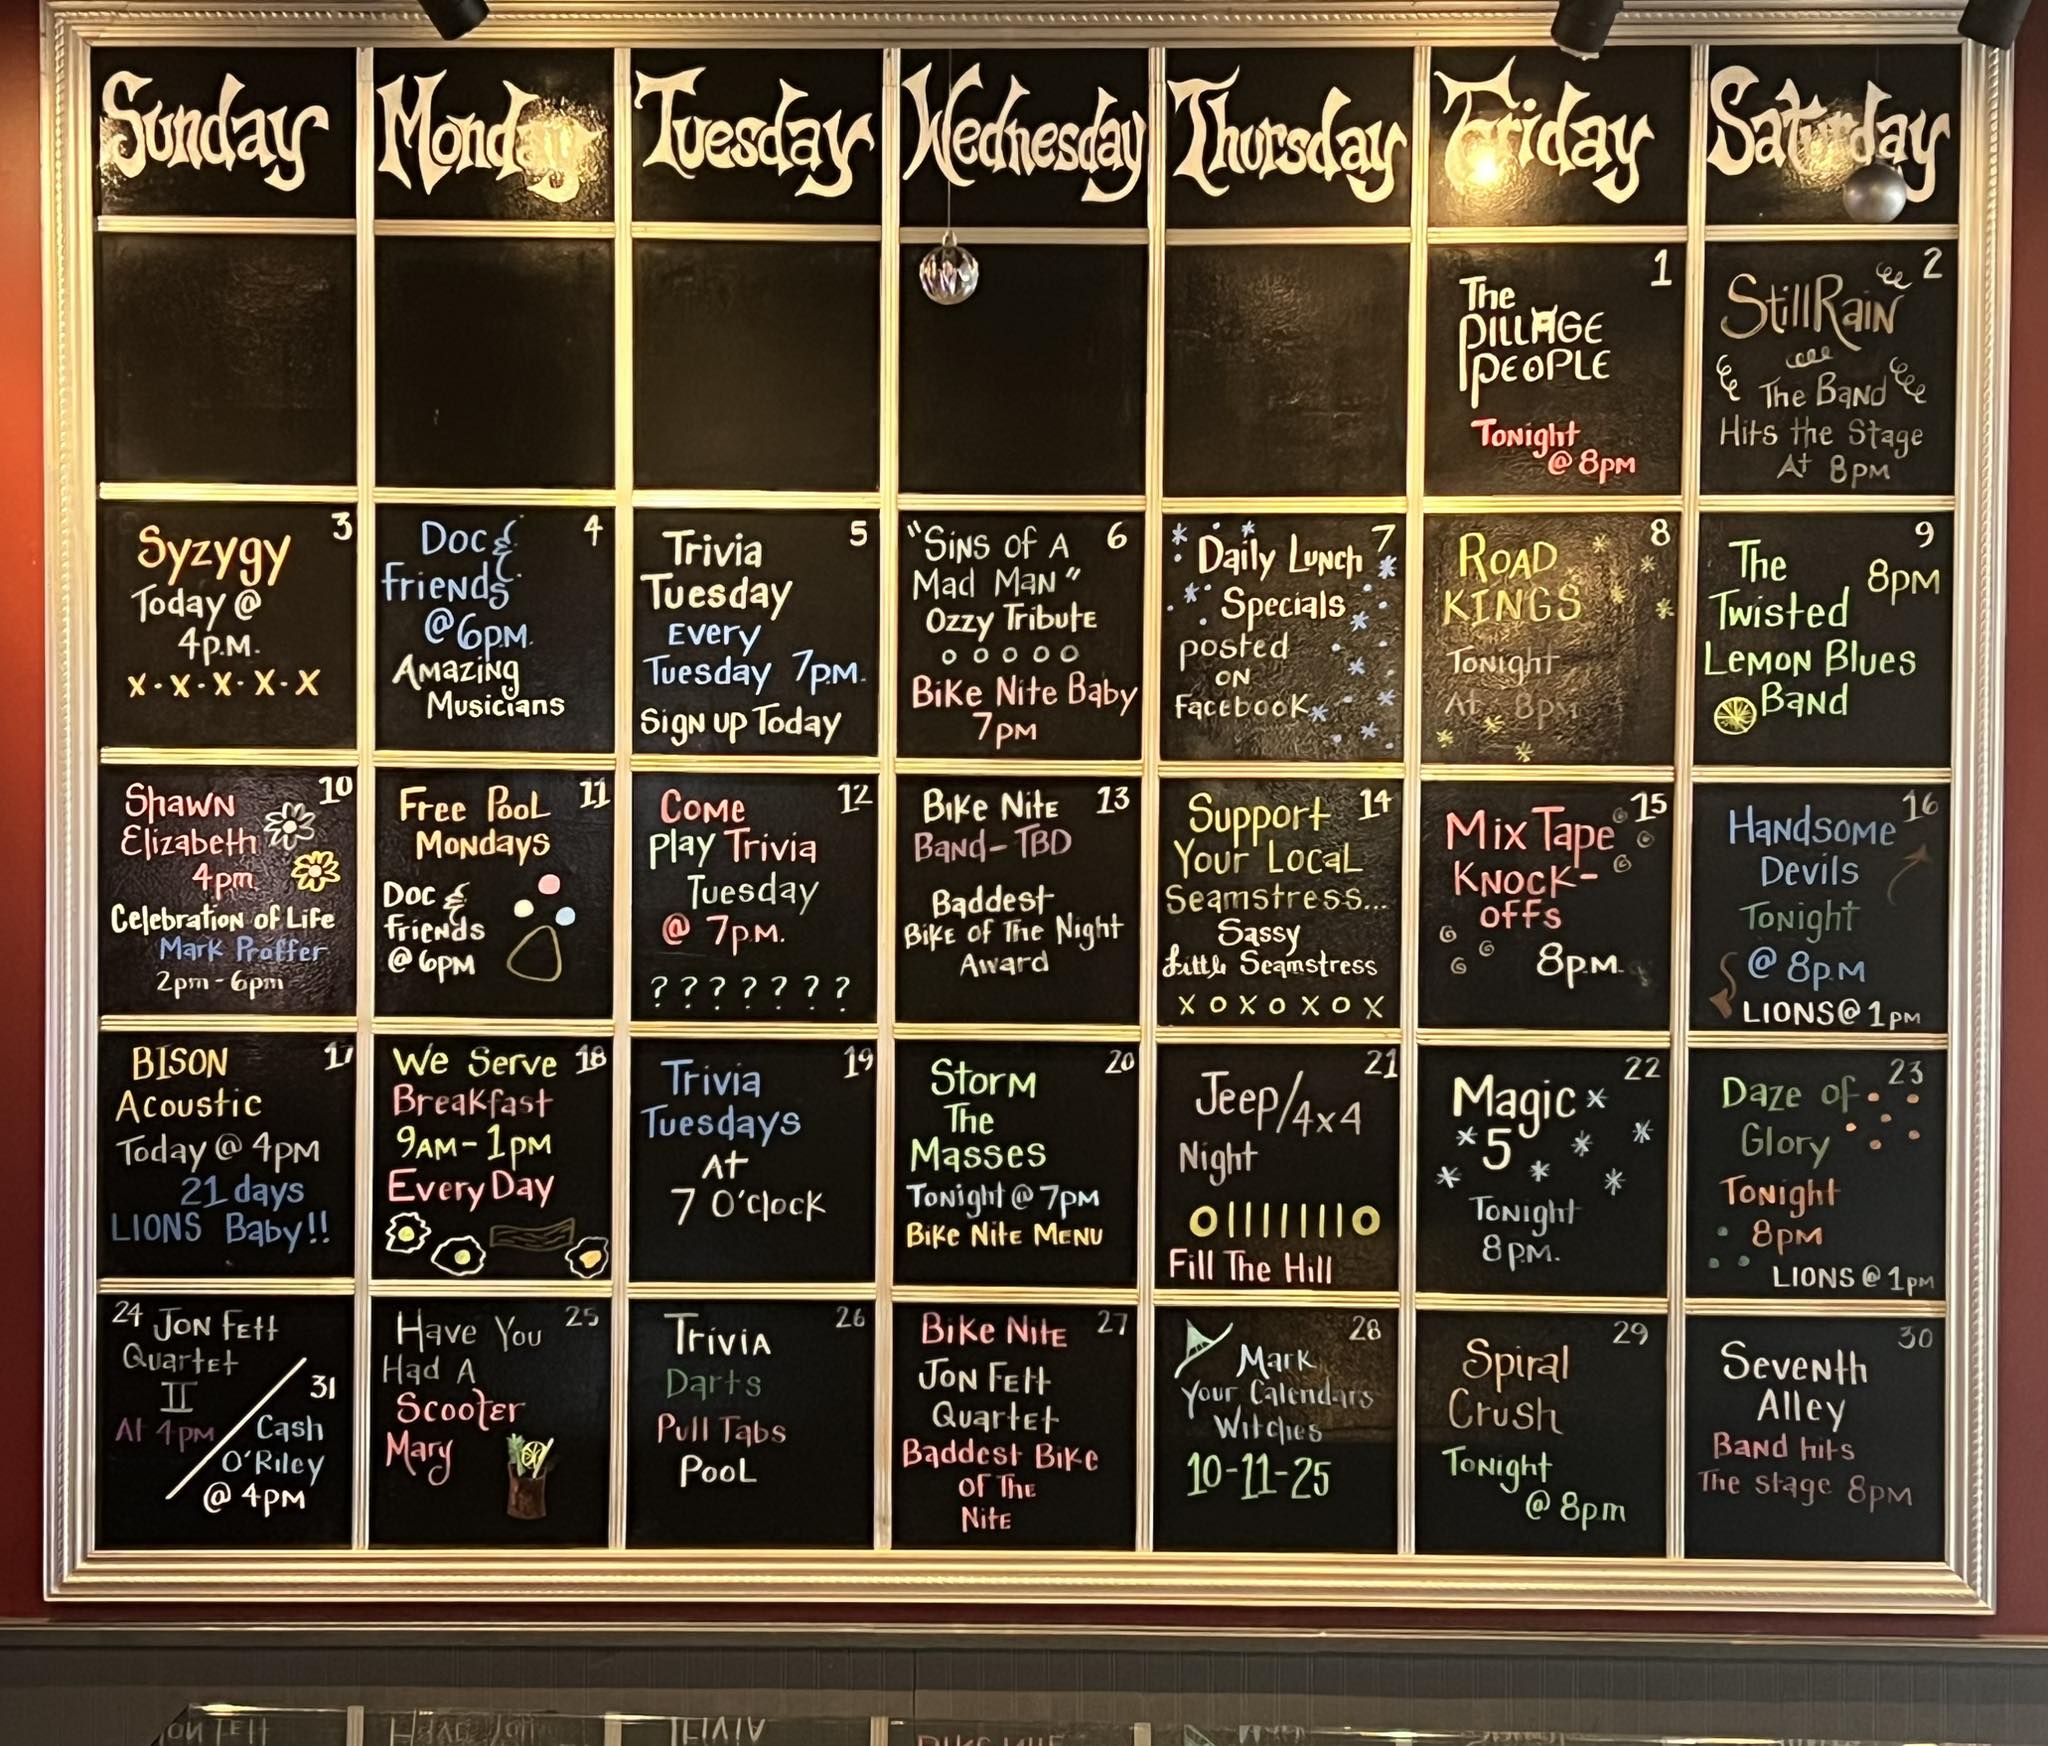 Sunday Monday Tuesday Wednesday Thursday Friday Saturday
1
The
PILLAGE
PEOPLE
Tonight
@ 8PM
2
StillRain
The Band
Hits the Stage
At 8PM
3
Syzygy
Today @
4P.M.
X·X·X·X·X
4
Doc &
friends
@ 6PM.
Amazing
Musicians
5
Trivia
Tuesday
Every
Tuesday 7PM.
Sign up Today
6
"Sins of A
Mad Man"
Ozzy Tribute
o o o o o
Bike Nite Baby
7PM
7
Daily Lunch
Specials
posted
on
Facebook
8
ROAD
KINGS
Tonight
At 8pm
9
The
8PM
Twisted
Lemon Blues
Band
10
Shawn
Elizabeth
4pm
Celebration of Life
Mark Proffer
2pm-6pm
11
Free Pool
Mondays
Doc &
friends
@ 6PM
12
Come
Play Trivia
Tuesday
@ 7P.M.
? ? ? ? ? ? ?
13
Bike Nite
Band-TBD
Baddest
Bike of The Night
Award
14
Support
Your Local
Seamstress...
Sassy
Little Seamstress
X O X O X O X
15
Mix Tape
Knock-
offs
8P.M.
16
Handsome
Devils
Tonight
@ 8P.M
LIONS @ 1PM
17
BISON
Acoustic
Today @ 4PM
21 days
LIONS Baby!!
18
We Serve
Breakfast
9AM-1PM
Every Day
19
Trivia
Tuesdays
At
7 O'clock
20
Storm
The
Masses
Tonight @ 7PM
Bike Nite Menu
21
Jeep/4x4
Night
O|||||||O
Fill The Hill
22
Magic
5
Tonight
8PM.
23
Daze of
Glory
Tonight
8PM
LIONS @ 1PM
24 Jon Fett
Quartet
II
At 4PM
31
Cash
O'Riley
@ 4PM
25
Have You
Had A
Scooter
Mary
26
Trivia
Darts
Pull Tabs
Pool
27
Bike Nite
Jon Fett
Quartet
Baddest Bike
of The
Nite
28
Mark
Your Calendars
Witches
10-11-25
29
Spiral
Crush
Tonight
@ 8pm
30
Seventh
Alley
Band hits
The stage 8PM